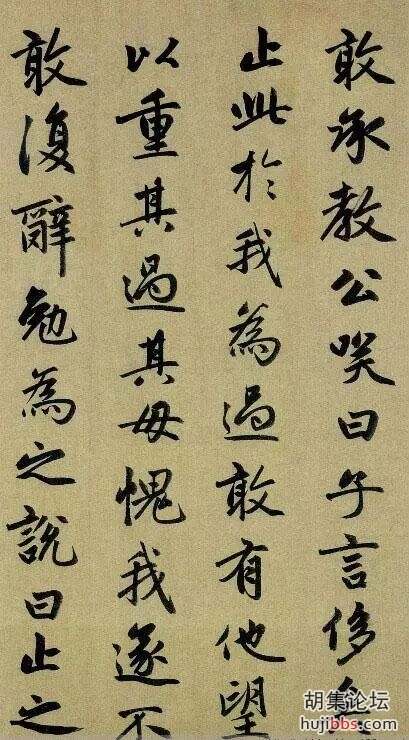 敢承教公笑曰子言侈矣
止此於我為過敢有他望
以重其過其毋愧我遂不
敢復辭勉為之說曰止之
胡集论坛
hujibbs.com